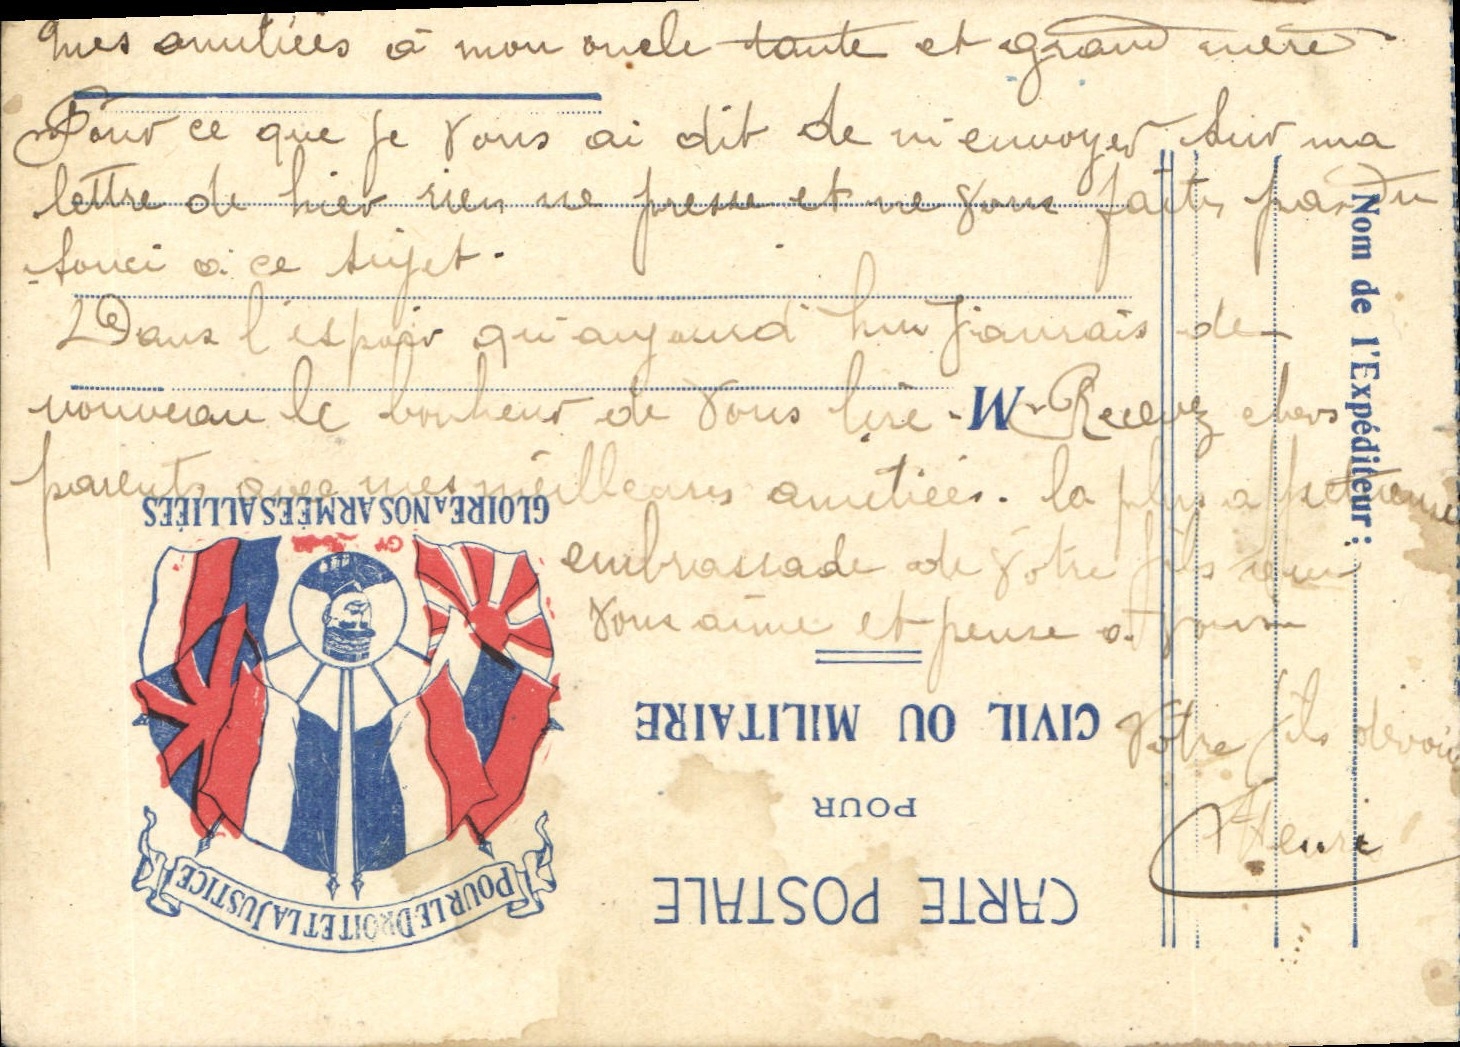 mes amitiées à mon oncle tante et grand mere
Pour ce que je vous ai dit de m'envoyer sur ma
lettre de hier rien ne presse et ne vous faites pas du
souci a ce sujet.
Dans l'espoir qu'aujourd'hui j'aurais de
nouveau le bonheur de vous lire. Recevez chers
M
parents avec mes meilleures amitiées. la plus affectueuse
embrassade de votre fils qui
vous aime et pense a vous
Votre fils dévoué
Henri
Nom de l'Expéditeur :
GLOIRE A NOS ARMÉES ALLIÉES
CIVIL OU MILITAIRE
POUR
CARTE POSTALE
POUR LE DROIT ET LA JUSTICE